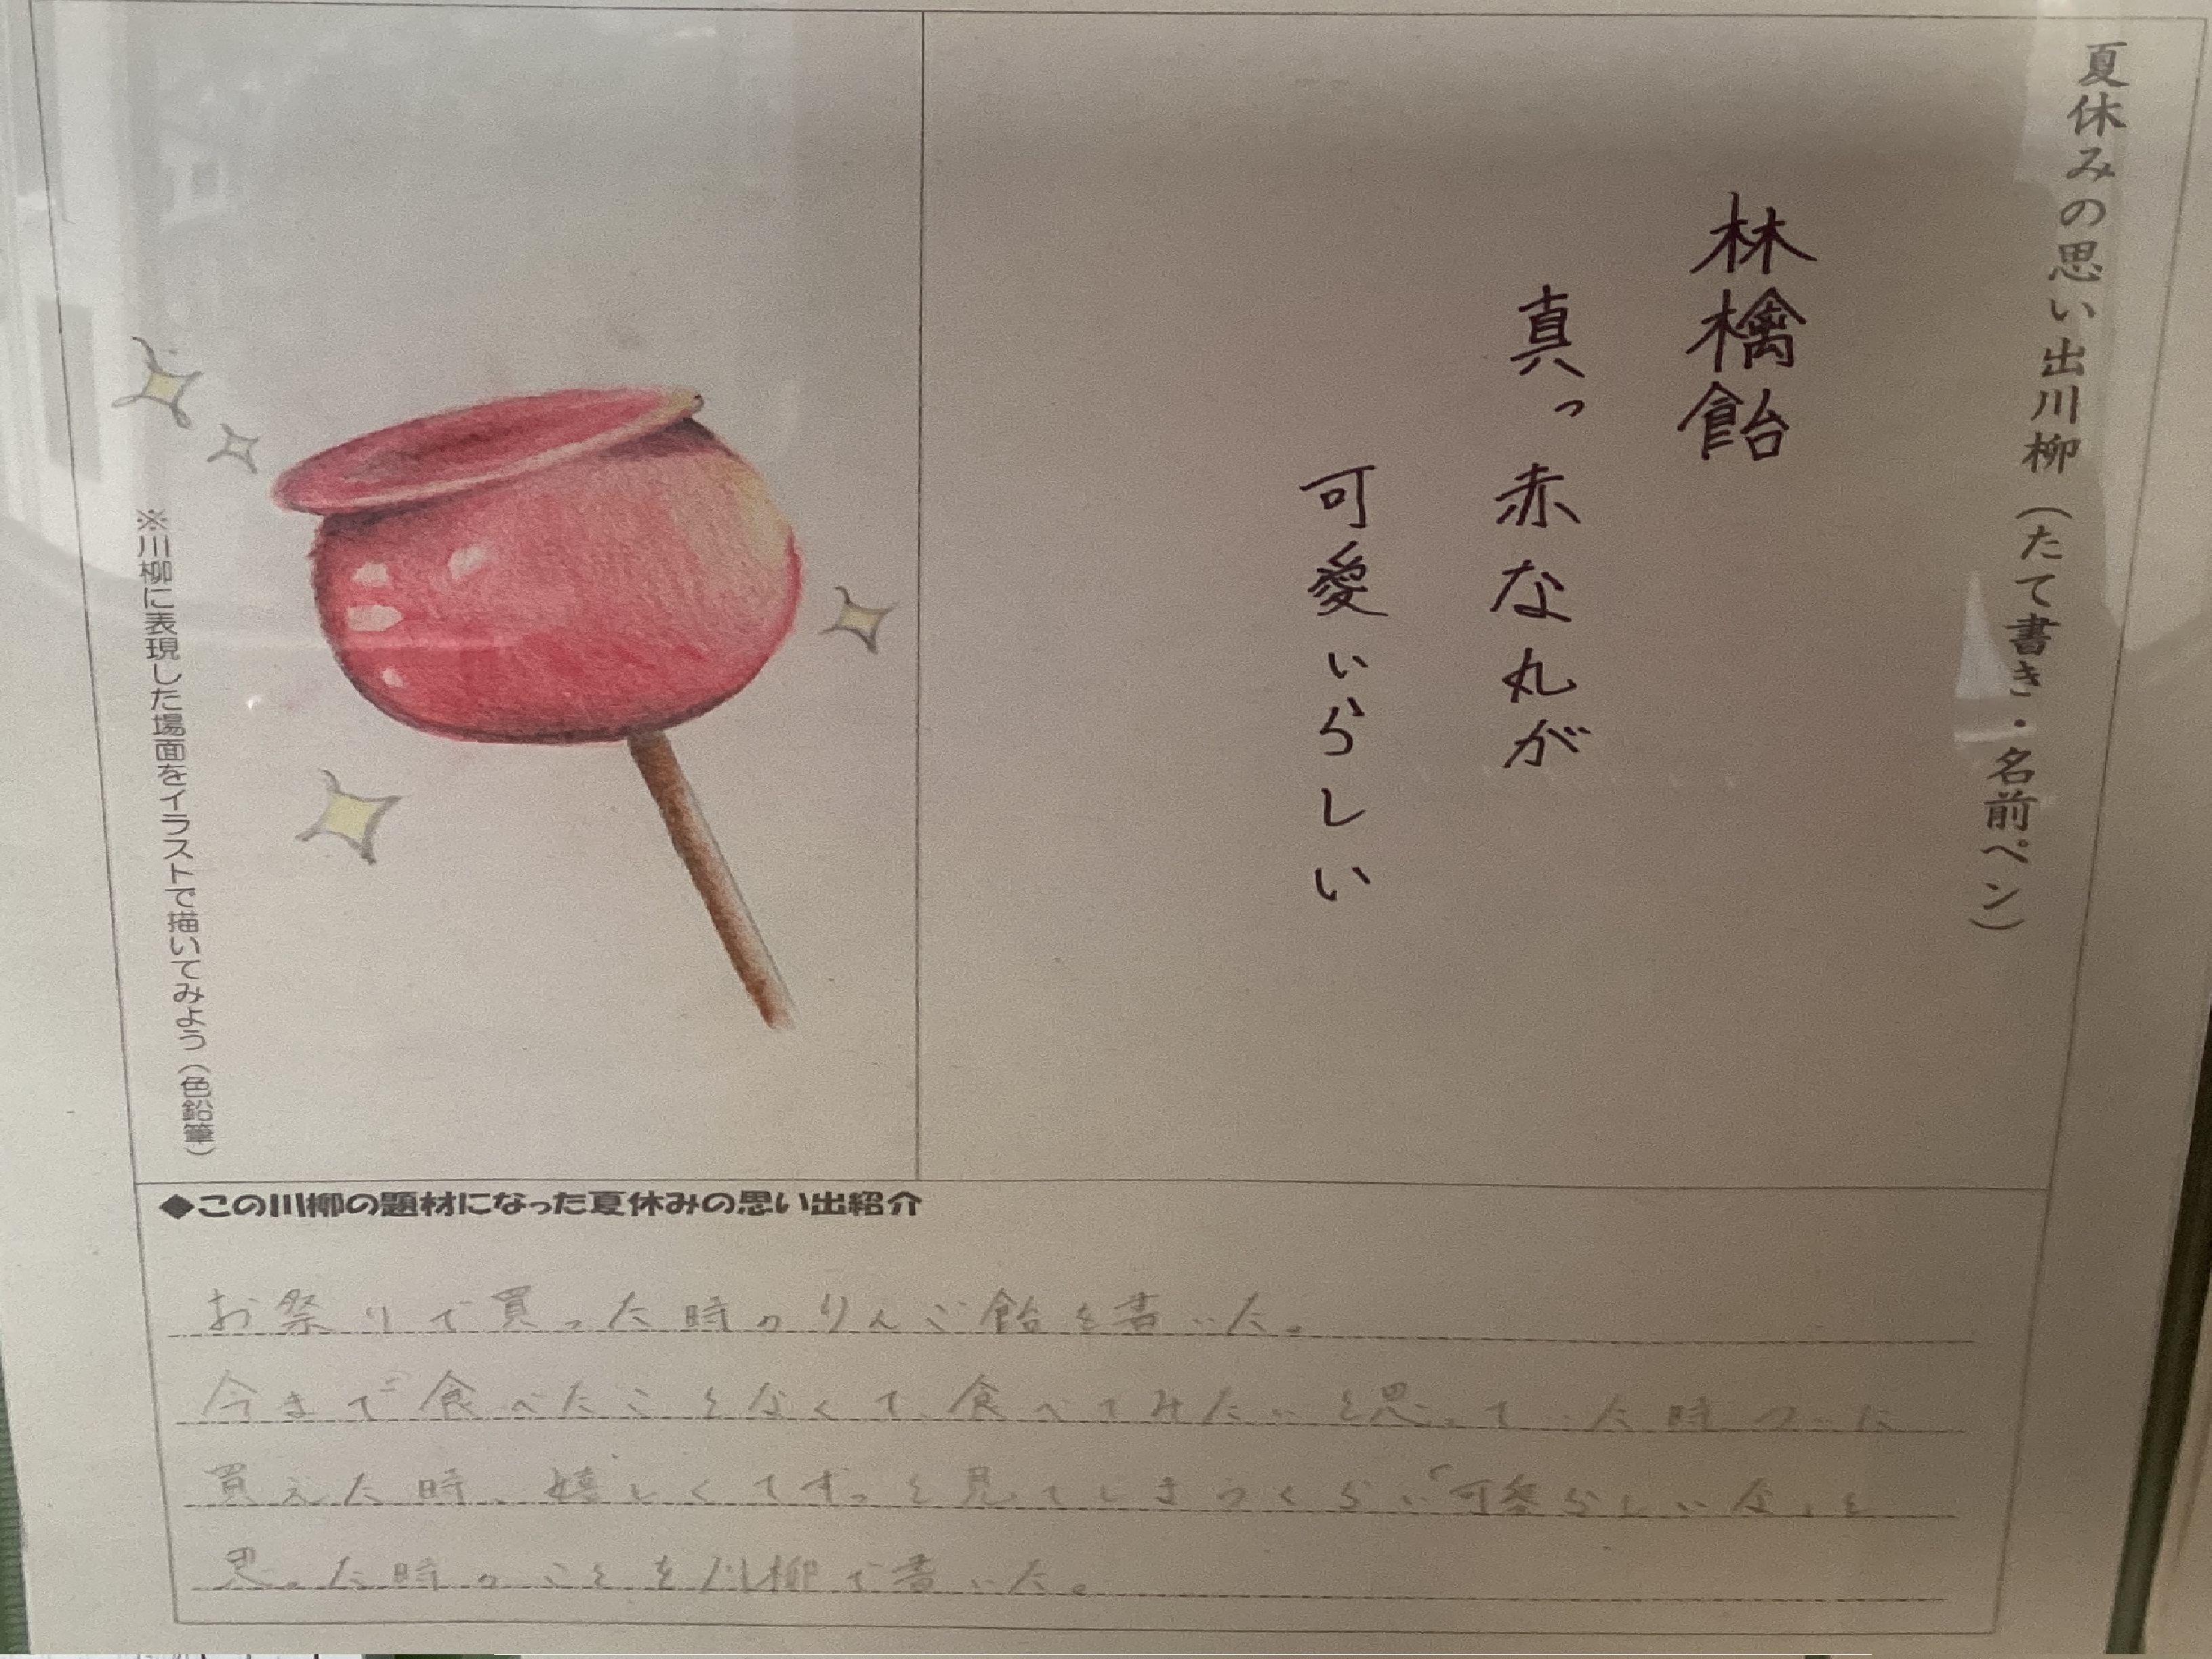 夏休みの思い出川柳（たて書き・名前ペン）
林檎飴
真っ赤な丸が
可愛いらしい
※川柳に表現した場面をイラストで描いてみよう（色鉛筆）
◆この川柳の題材になった夏休みの思い出紹介
お祭りで買った時のりんご飴を書いた。
今まで食べたことなくて、食べてみたいと思っていた時
買えた時、嬉しくてずっと見てしまうくらい「可愛らしいな」と
思った時のことを川柳で書いた。